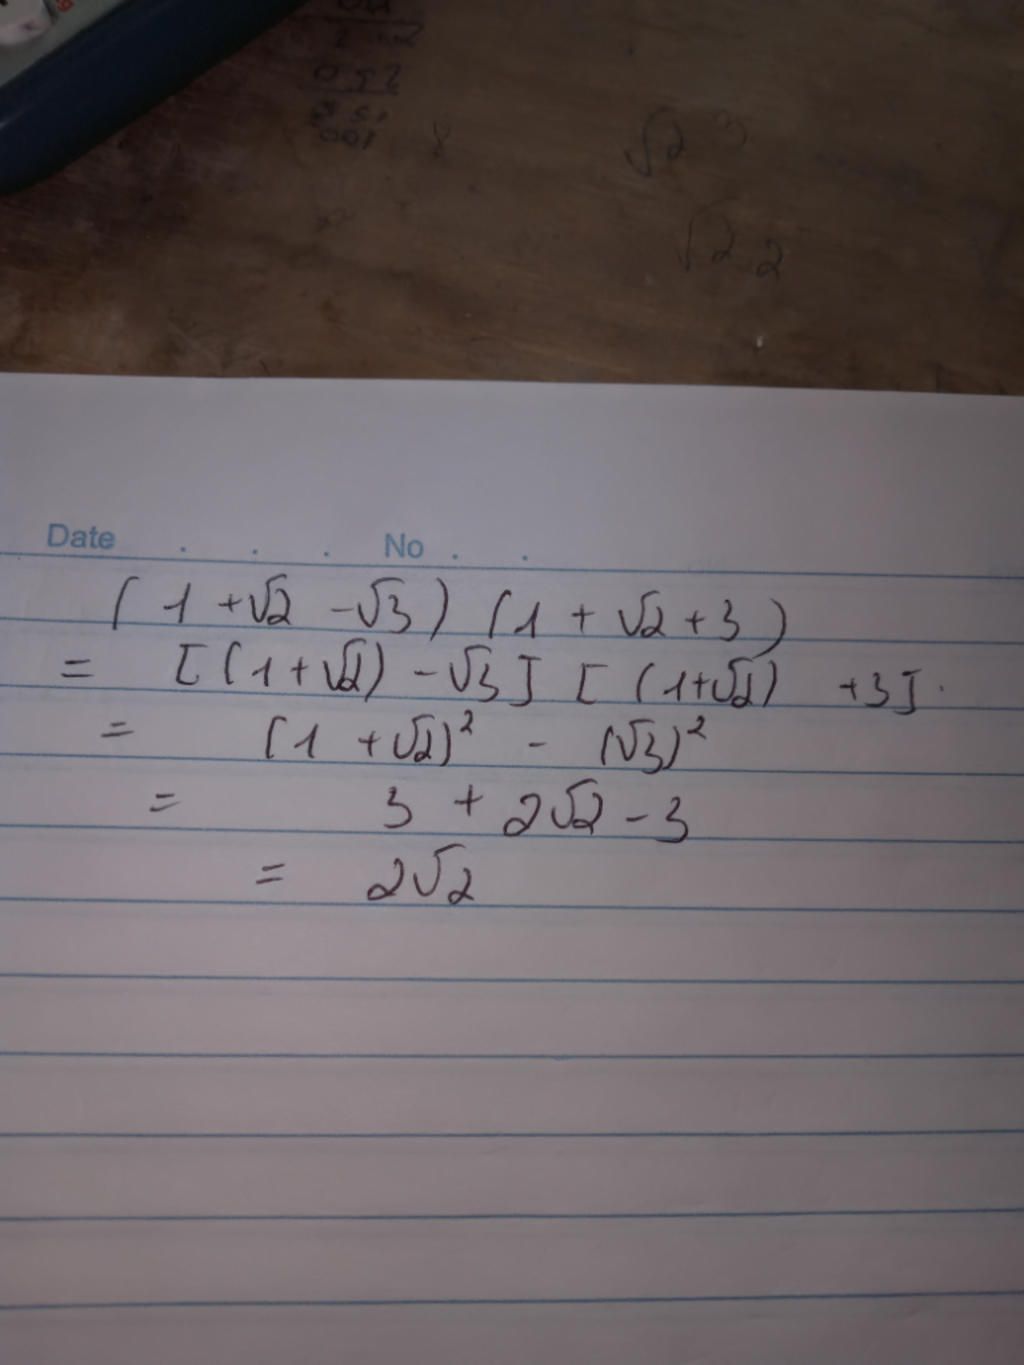 √2 3
√2 2
Date . . . No . .
(1 + √2 - √3) (1 + √2 + 3)
= [(1 + √2) - √3] [(1 + √2) + 3].
= (1 + √2)² - (√3)²
= 3 + 2√2 - 3
= 2√2